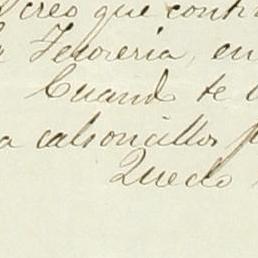 creo que contr
Tesoreria, en
Cuando te
a calsoncillos p
Quedo